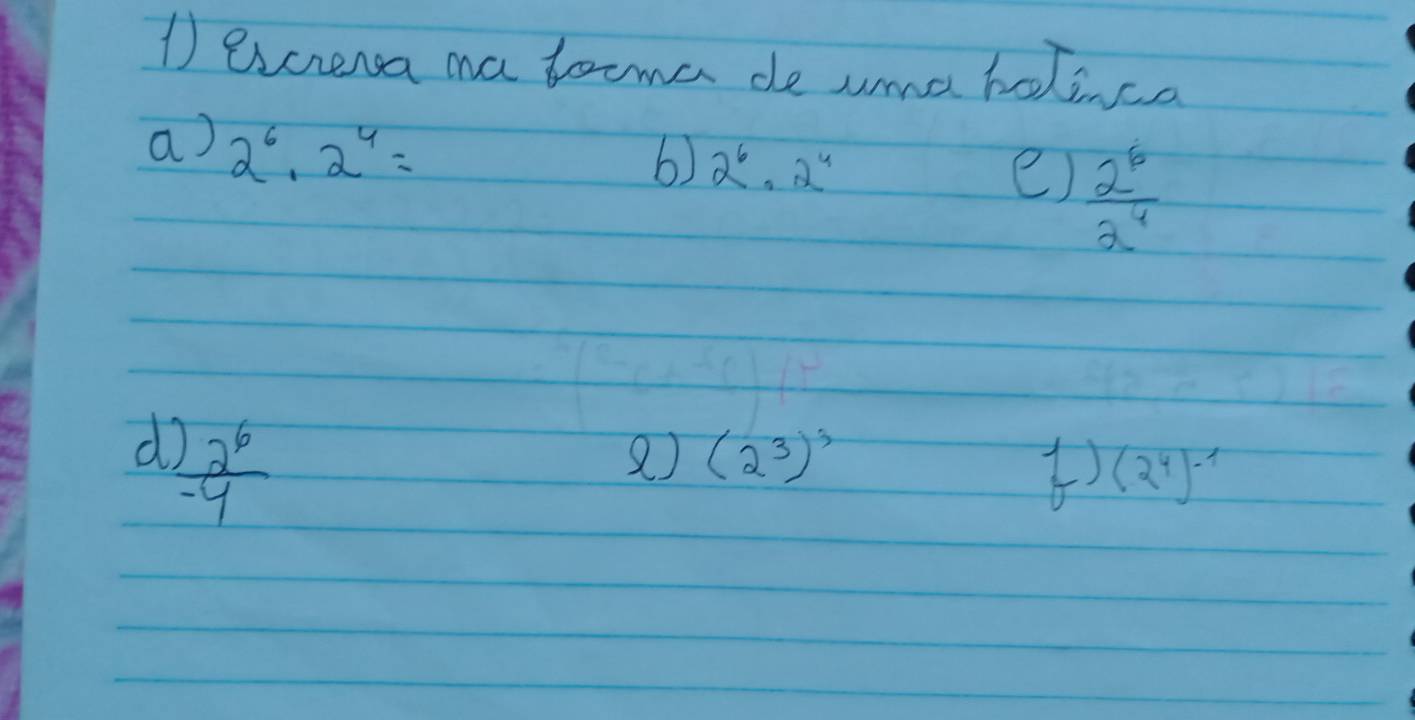 1) Escreva na forma de uma potênca
a) 2⁶ . 2⁴ = b) 2⁶ . 2⁴ c) 2⁶/2⁴
d) 2⁶/-4 e) (2³)³ f) (2⁴)⁻¹